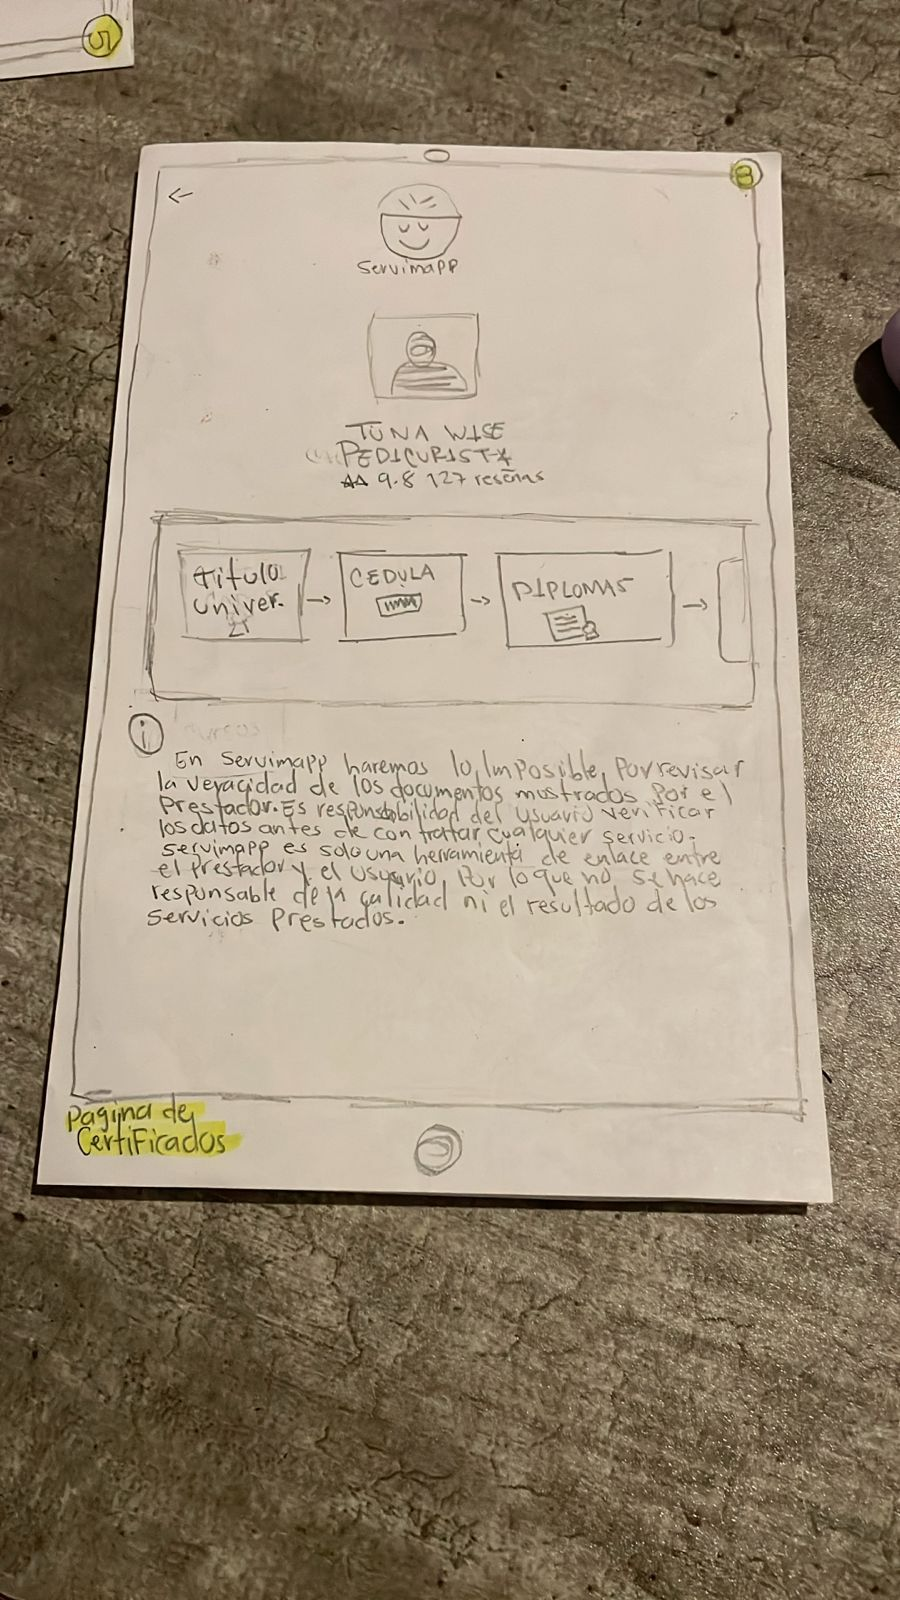 5
8
←
Servimapp
TUNA WISE
PEDICURISTA
9.8 127 reseñas
titulo
univer.
→
CEDULA
→
DIPLOMAS
→
i
En Servimapp haremos lo Imposible, Por revisar
la veracidad de los documentos mostrados Por el
Prestador. Es responsabilidad del usuario verificar
los datos antes de contrattar cualquier servicio.
servimapp es solo una herramienta de enlace entre
el prestador y el usuario, Por lo que no se hace
responsable de la calidad ni el resultado de los
Servicios Prestados.
Pagina de
Certificados